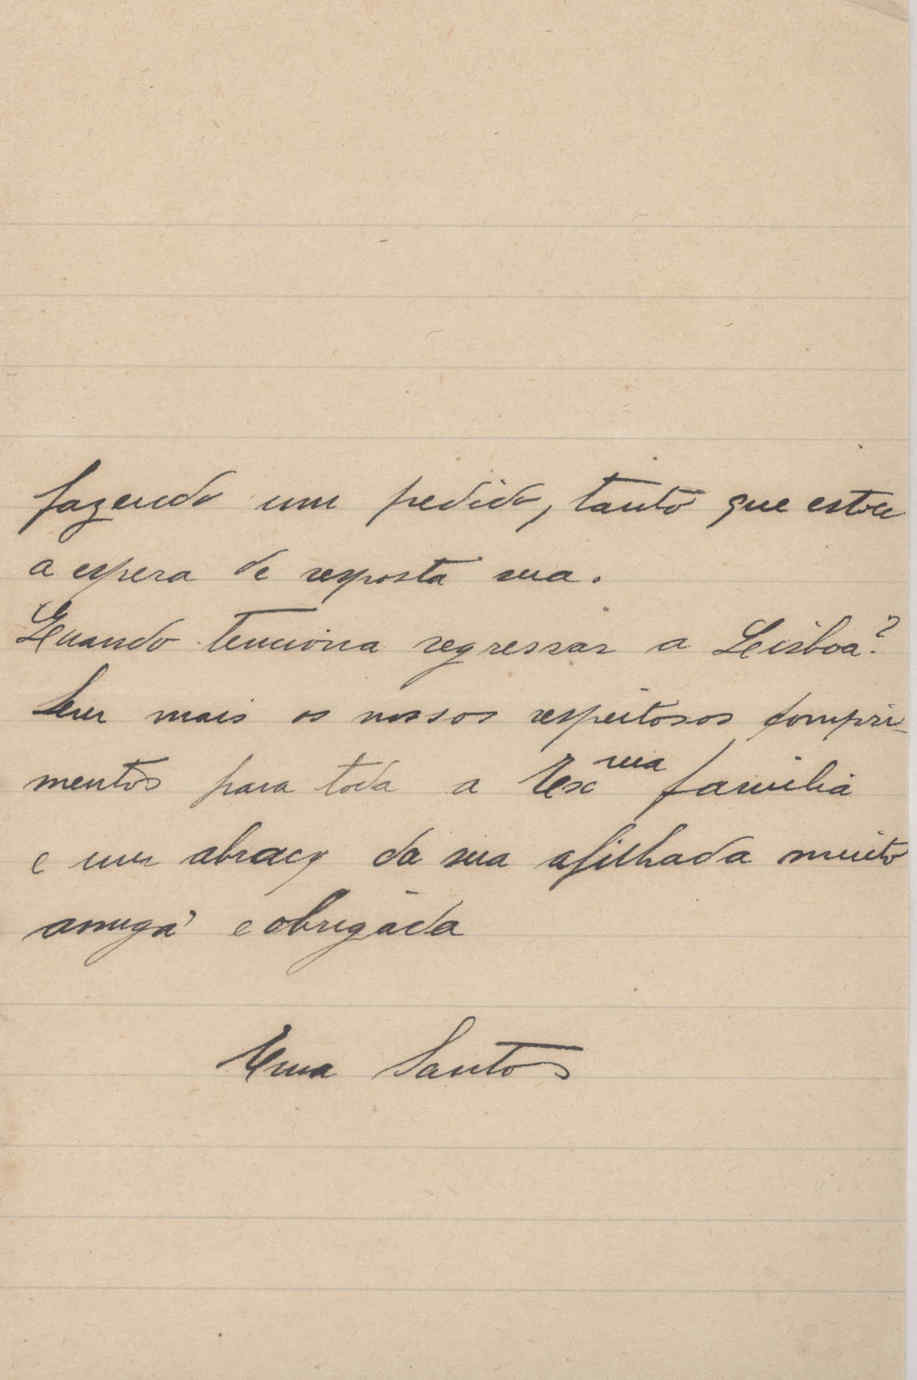 fazendo um pedido, tanto que estou
a espera de resposta sua.
Quando tenciona regressar a Lisboa?
Sem mais os nossos respeitosos compri-
mentos para toda a Exma familia
e um abraço da sua afilhada muito
amiga e obrigada
Ema Santos